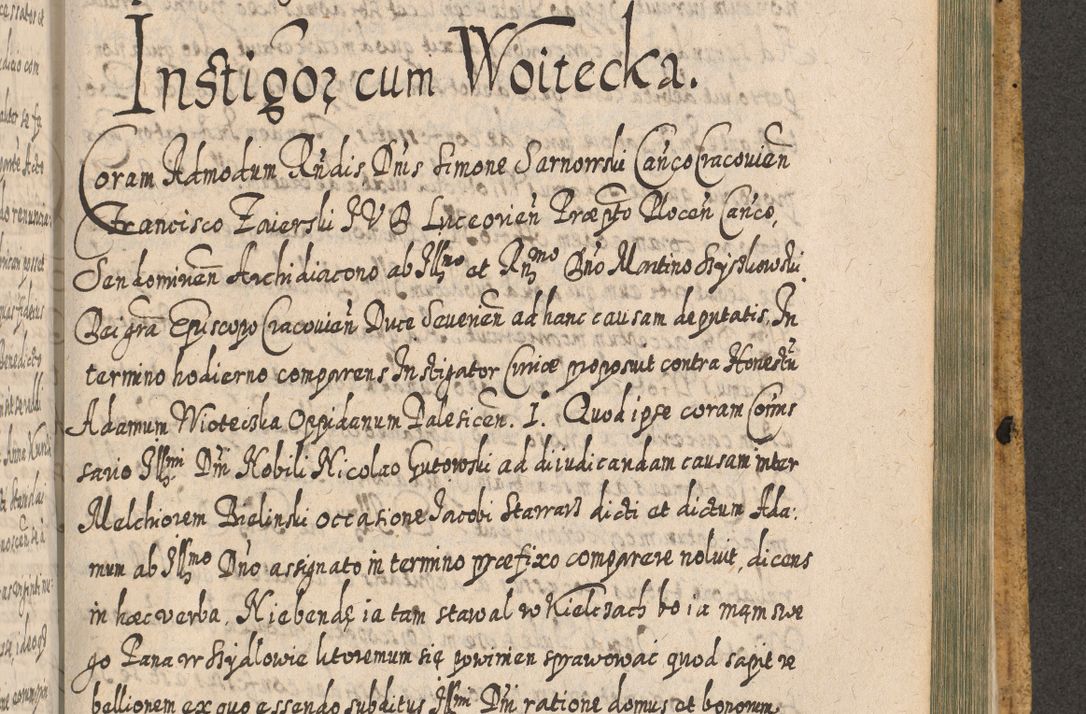 Instigor cum Woitecka.
Coram Admodum Rndis Dnis Simone Sarnowski Canco Cracovien
Francisco Zaierski I V D Luceorien Præpto Plocen Canco,
Sendomirien Archidiacono ab Illmo et Rnmo Dno Martino Szyszkowski
Dei gra Episcopo Cracovien Duce Severien ad hanc causam deputatis, In
termino hodierno comparens Instigator Curiæ proposuit contra Honestu
Adamum Wioteczka Oppidanum Dalesicen. I. Quod ipse coram Comis
sario Illmi Dni Nobili Nicolao Gutowski ad diiudicandam causam inter
Melchiorem Bielinski occasione Jacobi Starrars dicti et dictum Ada:
mum ab Illmo Dno assignato in termino præfixo comparere noluit, dicens
in hæc verba, Niebendę ia tam stawal w Kielczach bo ia mąm swe
go Pana w Szydlowie ktoremum się powinien sprawowac quod sapit re
bellionem ex quo essendo subditus Illmi Dni ratione domus et bonorum